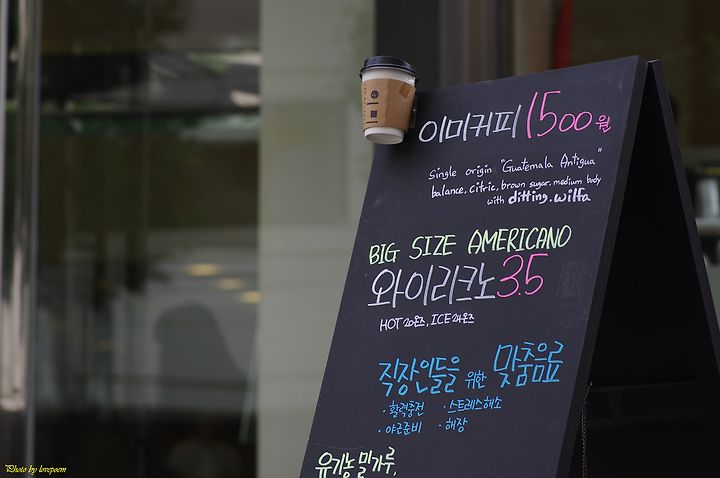 이미커피 1500원
Single origin "Guatemala Antigua"
balance, citric, brown sugar, medium body
with ditting.wilfa
BIG SIZE AMERICANO
와이리크노 3.5
HOT 20온즈, ICE 24온즈
직장인들을 위한 맞춤음료
· 활력충전 · 스트레스해소
· 야근준비 · 해장
유기농 밀가루,
Photo by lovepoem